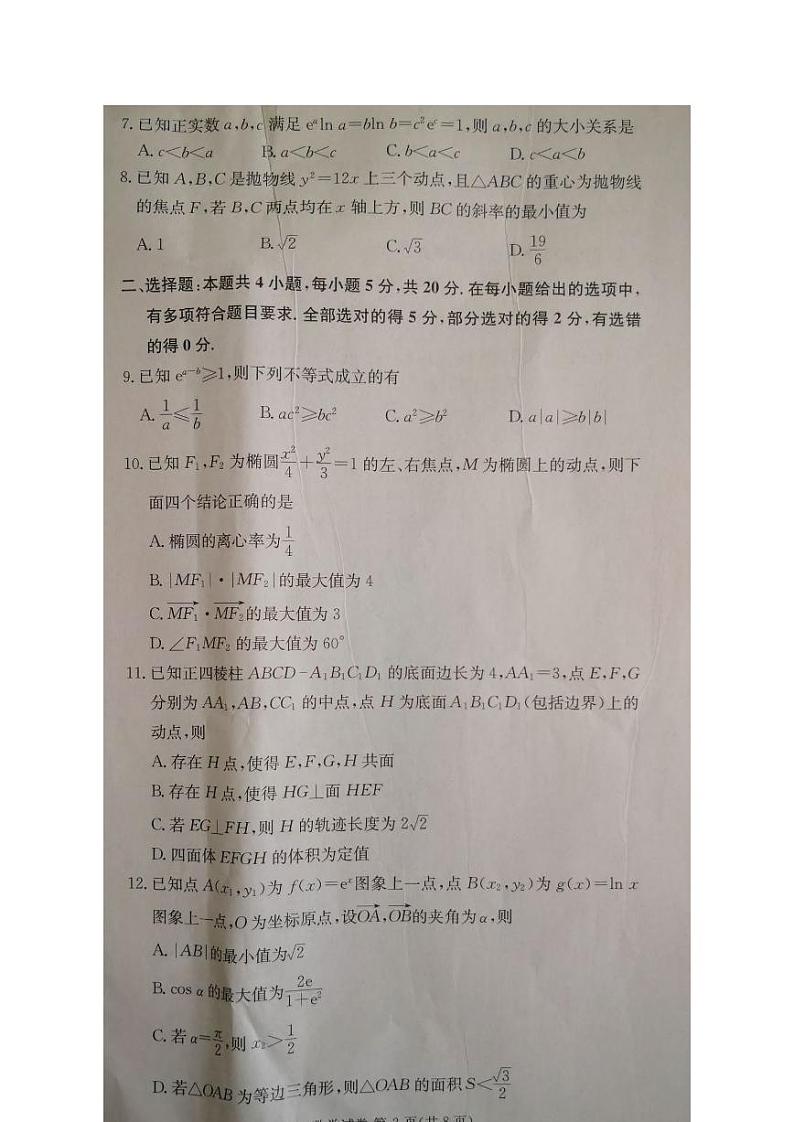 7. 已知正实数 a,b,c 满足 eᵃln a=bln b=c²eᶜ=1,则 a,b,c 的大小关系是
A. c<b<a B. a<b<c C. b<a<c D. c<a<b
8. 已知 A,B,C 是抛物线 y²=12x 上三个动点,且△ABC 的重心为抛物线
的焦点 F,若 B,C 两点均在 x 轴上方,则 BC 的斜率的最小值为
A. 1 B. √2 C. √3 D. 19/6
二、选择题:本题共 4 小题,每小题 5 分,共 20 分. 在每小题给出的选项中,
有多项符合题目要求. 全部选对的得 5 分,部分选对的得 2 分,有选错
的得 0 分.
9. 已知 eᵃ⁻ᵇ≥1,则下列不等式成立的有
A. 1/a≤1/b B. ac²≥bc² C. a²≥b² D. a|a|≥b|b|
10. 已知 F₁,F₂ 为椭圆x²/4+y²/3=1 的左、右焦点,M 为椭圆上的动点,则下
面四个结论正确的是
A. 椭圆的离心率为1/4
B. |MF₁|·|MF₂|的最大值为 4
C. MF₁→·MF₂→的最大值为 3
D. ∠F₁MF₂ 的最大值为 60°
11. 已知正四棱柱 ABCD-A₁B₁C₁D₁ 的底面边长为 4,AA₁=3,点 E,F,G
分别为 AA₁,AB,CC₁ 的中点,点 H 为底面A₁B₁C₁D₁(包括边界)上的
动点,则
A. 存在 H 点,使得 E,F,G,H 共面
B. 存在 H 点,使得 HG⊥面 HEF
C. 若 EG⊥FH,则 H 的轨迹长度为 2√2
D. 四面体 EFGH 的体积为定值
12. 已知点 A(x₁,y₁)为 f(x)=eˣ图象上一点,点 B(x₂,y₂)为 g(x)=ln x
图象上一点,O 为坐标原点,设OA→,OB→的夹角为 α,则
A. |AB|的最小值为√2
B. cos α 的最大值为2e/(1+e²)
C. 若 α=π/2,则 x₂>1/2
D. 若△OAB 为等边三角形,则△OAB 的面积 S<√3/2
数学试卷 第 2 页(共 8 页)